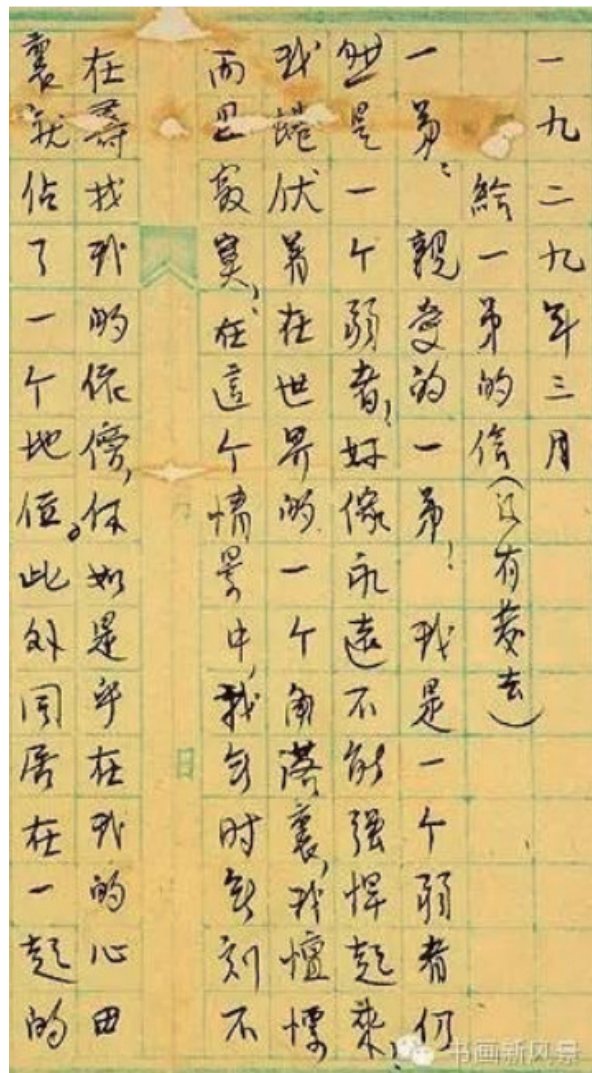 一九二九年三月
給一弟的信(没有發去)
一弟：親愛的一弟！我是一个弱者仍
然是一个弱者！好像永遠不能强悍起來，
我蜷伏着在世界的一个角落裏，我慄
而且寂寞，在這个情景中，我無时無刻不
在尋找我的依傍，你如是乎在我的心田
裏就佔了一个地位。此外同居在一起的
月 日
书画新风景